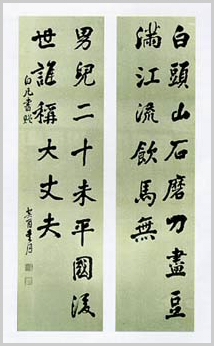 白頭山石磨刀盡豆
滿江流飲馬無
男兒二十未平國後
世誰稱大丈夫
白凡書